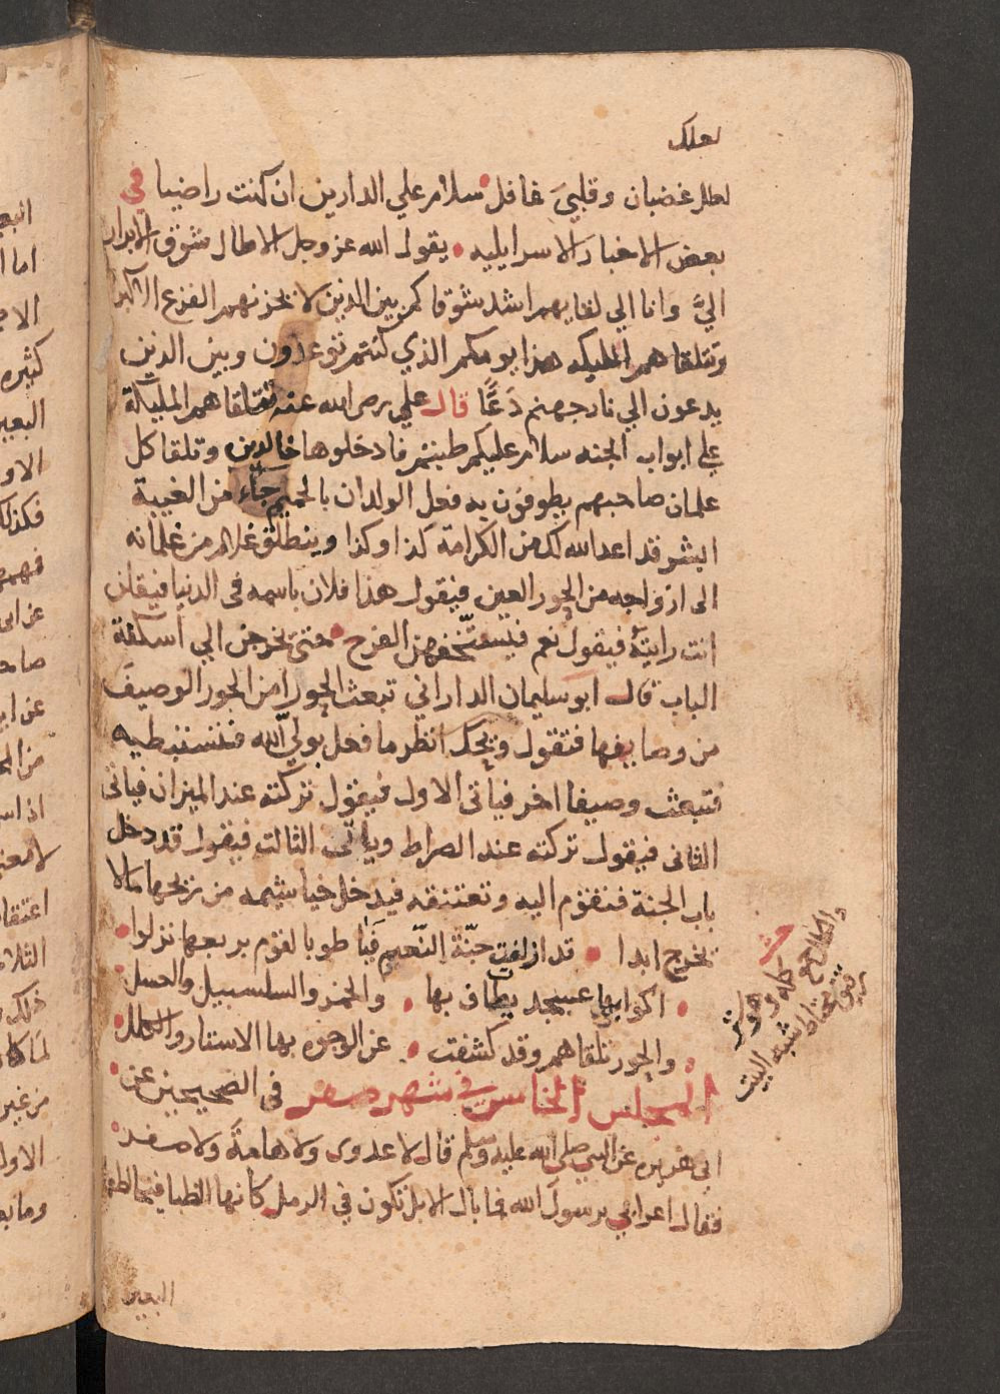 لعلك
لعلك غضبان وقلبي غافل سلام علي الدارين ان كنت راضيا في
بعض الاخبار الاسرايليه يقول الله عز وجل الا طال شوق الابرار
اليَّ وانا الي لقايهم اشد شوقا كم بين الذين لا يحزنهم الفزع الاكبر
وتتلقاهم المليكه هذا يومكم الذي كنتم توعدون وبين الذين
يدعون الي نار جهنم دَعًّا قال علي رضي الله عنه تتلقاهم المليكة
علي ابواب الجنه سلام عليكم طبتم فادخلوها خالدين وتلقا كل
غلمان صاحبهم يطوفون به فعل الولدان بالحميم جاء من الغيبة
ابشر قد اعد الله لك من الكرامة كذا وكذا وينطلق غلام من غلمانه
الى ازواجه من الحور العين فيقول هذا فلان باسمه في الدنيا فيقلن
انت رايته فيقول نعم فيستخفهن الفرح حتى يخرجن الي اسكفة
الباب قال ابو سليمان الداراني تبعث الحورا من الحور الوصيف
من وصايفها فتقول ويحك انظر ما فعل بولي الله فتستبطيه
فتبعث وصيفا اخر فياتى الاول فيقول تركته عند الميزان فياتى
الثانى فيقول تركته عند الصراط وياتى الثالث فيقول قد دخل
باب الجنة فتقوم اليه وتعتنقه فيدخل خياشيمه من ريحها مالا
يخرج ابدا قد ازلفت جنّة النّعيم فيا طوبا لقوم بربعها نزلوا
اكوابها عسجد يطاف بها والخمر والسلسبيل والعسل
والحور تلقاهم وقد كشفت عن الوجوه بها الاستار والكلل
المجلس الخامس في شهر صفر في الصحيحين عن
ابي هريره عن النبي صلى الله عليه وسلم قال لا عدوى ولا هامة ولا صفر
فقال اعرابي يرسول الله فما بال الابل تكون في الرمل كانها الظبا فيخالطها
البعير